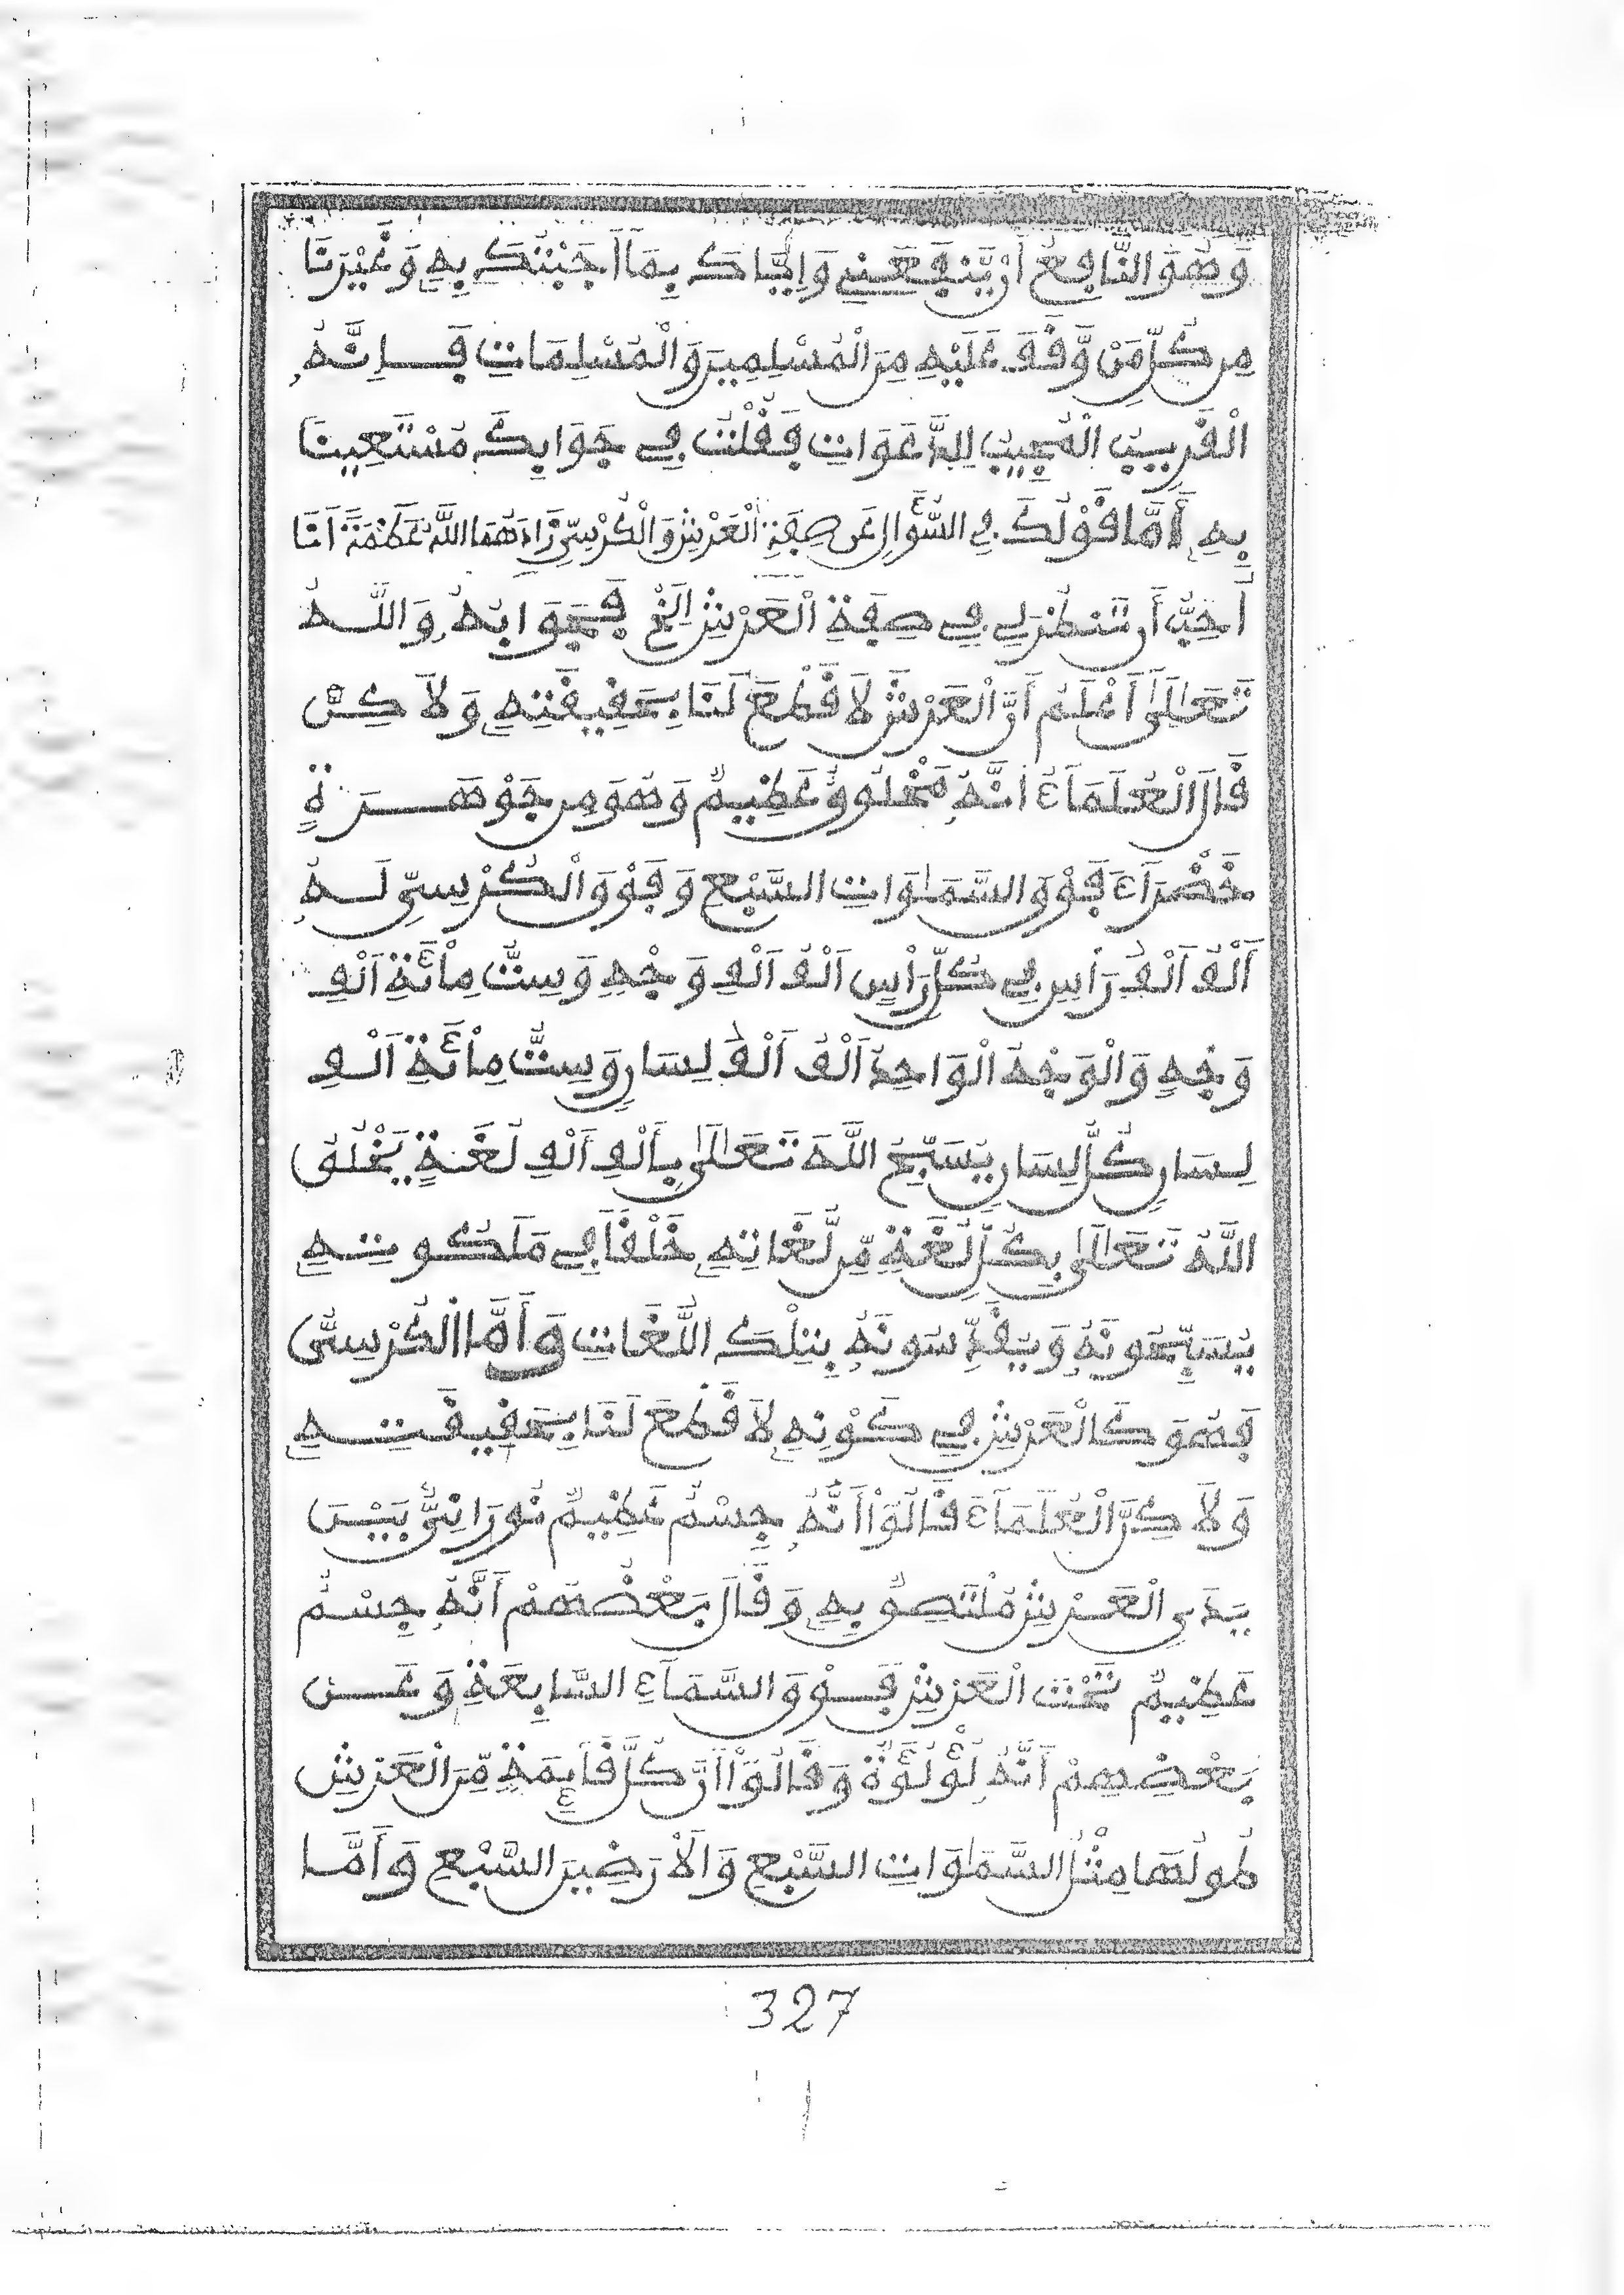 وَهُوَ النَّافِعُ أَن يَّنفَعَنِي وَإِيَّاكَ بِمَا أَجَبْتُكَ بِهِ وَغَيْرَنَا
مِن كُلِّ مَن وَّقَفَ عَلَيْهِ مِنَ الْمُسْلِمِينَ وَالْمُسْلِمَاتِ فَإِنَّهُ
الْقَرِيبُ الْمُجِيبُ لِلدَّعَوَاتِ فَقُلْتُ فِي جَوَابِكَ مُسْتَعِينًا
بِهِ أَمَّا قَوْلُكَ فِي السُّؤَالِ عَن صِفَةِ الْعَرْشِ وَالْكُرْسِيِّ زَادَهُمَا اللَّهُ عَظَمَةً أَنَا
أُحِبُّ أَن تَنظُرَ لِي فِي صِفَةِ الْعَرْشِ إِلَخْ فَجَوَابُهُ وَاللَّهُ
تَعَالَى أَعْلَمُ أَنَّ الْعَرْشَ لَا قَطْعَ لَنَا بِحَقِيقَتِهِ وَلَاكِنْ
قَالَ الْعُلَمَاءُ إِنَّهُ مَخْلُوقٌ عَظِيمٌ وَهُوَ مِن جَوْهَرَةٍ
خَضْرَاءَ فَوْقَ السَّمَاوَاتِ السَّبْعِ وَفَوْقَ الْكُرْسِيِّ لَهُ
أَلْفُ أَلْفِ رَأْسٍ فِي كُلِّ رَأْسٍ أَلْفُ أَلْفِ وَجْهٍ وَسِتُّ مِائَةِ أَلْفِ
وَجْهٍ وَالْوَجْهُ الْوَاحِدُ أَلْفُ أَلْفِ لِسَانٍ وَسِتُّ مِائَةِ أَلْفِ
لِسَانٍ كُلُّ لِسَانٍ يُسَبِّحُ اللَّهَ تَعَالَى بِأَلْفِ أَلْفِ لُغَةٍ يَخْلُقُ
اللَّهُ تَعَالَى بِكُلِّ لُغَةٍ مِّن لُّغَاتِهِ خَلْقًا فِي مَلَكُوتِهِ
يُسَبِّحُونَهُ وَيُقَدِّسُونَهُ بِتِلْكَ اللُّغَاتِ وَأَمَّا الْكُرْسِيُّ
فَهُوَ كَالْعَرْشِ فِي كَوْنِهِ لَا قَطْعَ لَنَا بِحَقِيقَتِهِ
وَلَاكِنَّ الْعُلَمَاءَ قَالُوا أَنَّهُ جِسْمٌ عَظِيمٌ نُورَانِيٌّ بَيْنَ
يَدَيِ الْعَرْشِ مُلْتَصِقٌ بِهِ وَقَالَ بَعْضُهُمْ أَنَّهُ جِسْمٌ
عَظِيمٌ تَحْتَ الْعَرْشِ فَوْقَ السَّمَاءِ السَّابِعَةِ وَعَن
بَعْضِهِمْ أَنَّهُ لُؤْلُؤَةٌ وَقَالُوا أَنَّ كُلَّ قَائِمَةٍ مِّنَ الْعَرْشِ
طُولُهَا مِثْلُ السَّمَاوَاتِ السَّبْعِ وَالْأَرَضِينَ السَّبْعِ وَأَمَّا
327